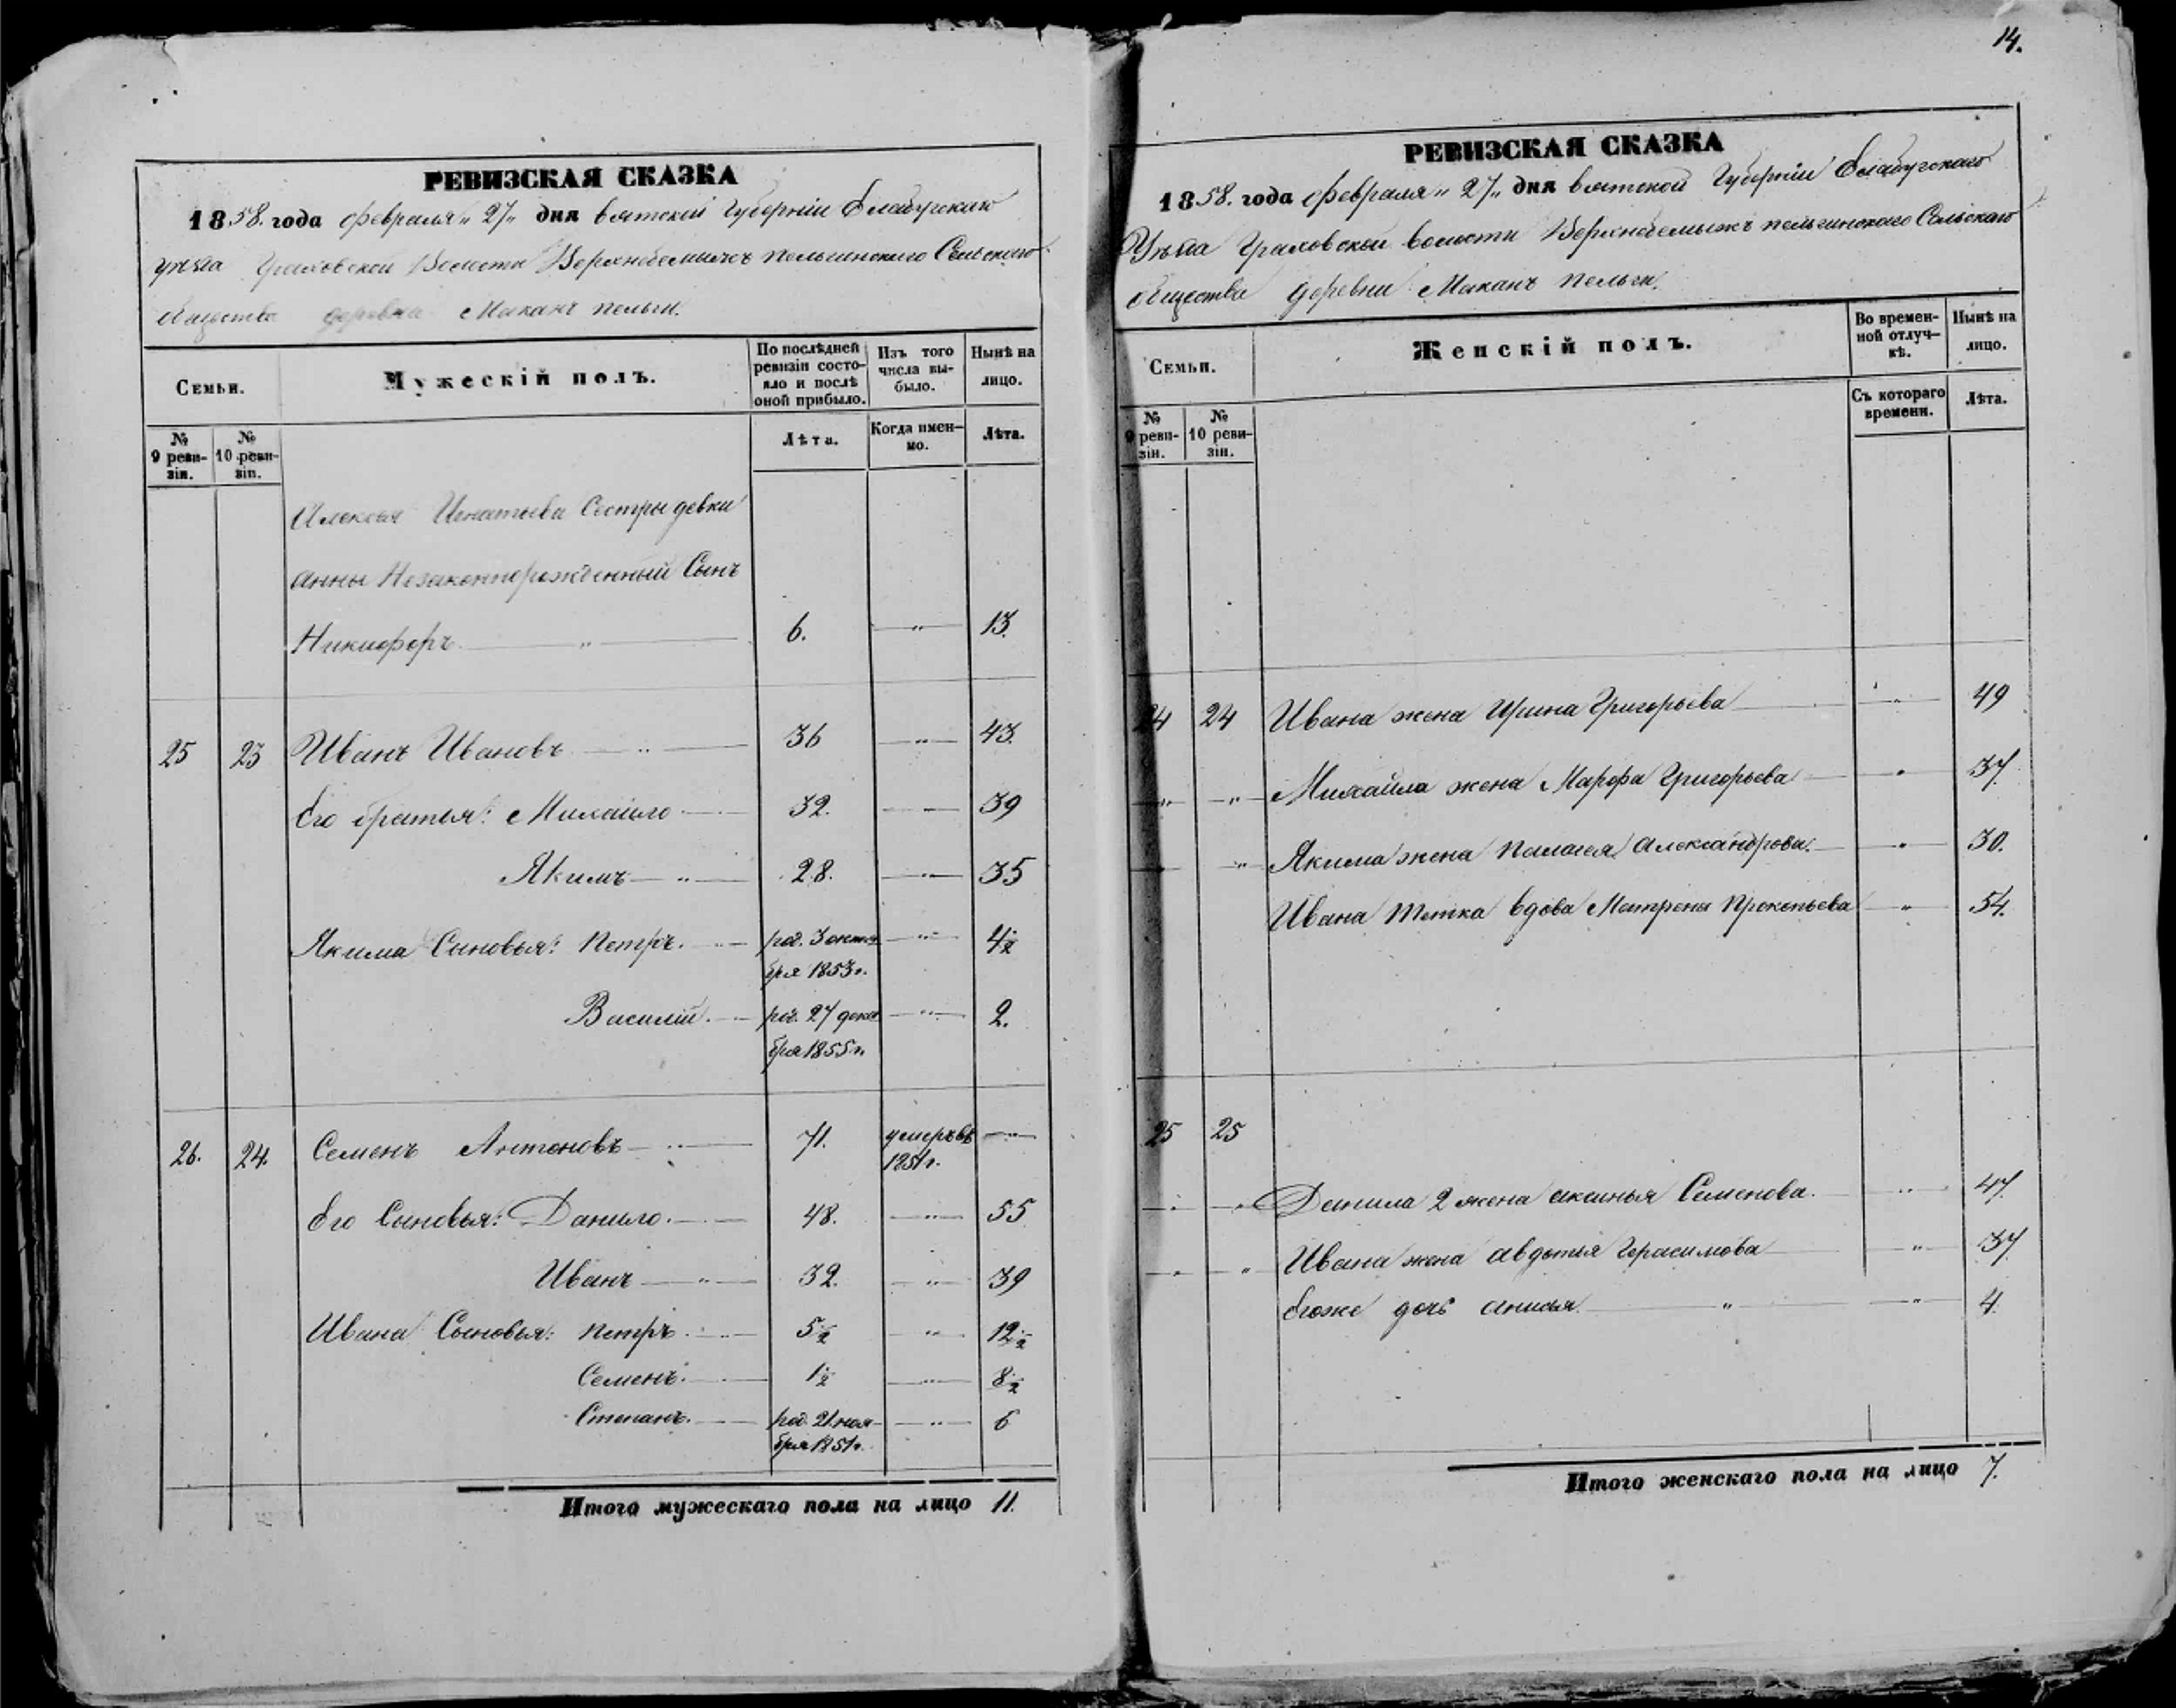 14.
РЕВИЗСКАЯ СКАЗКА
1858. года февраля „27„ дня вятской Губерніи Елабугскаго
уѣзда Граховской Волости Верхнебемыжъ пельгинскаго Сельскаго
общества деревни Маканъ пельги.
Семьи. Мужескій полъ. По послѣдней ревизіи состояло и послѣ оной прибыло. Изъ того числа выбыло. Нынѣ на лицо.
№ 9 ревизіи. № 10 ревизіи. Лѣта. Когда именно. Лѣта.
Алексея Игнатьева Сестры девки
анны Незаконнорожденный Сынъ
Никифоръ 6. „ 13.
25 23 Иванъ Ивановъ 36 „ 43.
Его братья: Михайло 32. „ 39
Якимъ „ 28. „ 35
Якима Сыновья: Петръ. род. 3 октя- „ 4½
бря 1853г.
Василій. род. 27 дека „ 2.
бря 1855г.
26. 24. Семенъ Антоновъ 71. умеръ въ „
1851г.
Его Сыновья: Данило. 48. „ 55
Иванъ „ 32. „ 39
Ивана Сыновья: Петръ. 5½ „ 12½
Семенъ. 1½ „ 8½
Степанъ. род. 21 ноя- „ 6
бря 1851г.
Итого мужескаго пола на лицо 11.
РЕВИЗСКАЯ СКАЗКА
1858. года февраля „27„ дня вятской Губерніи Елабугскаго
Уѣзда Граховской волости Верхнебемыжъ пельгинскаго Сельскаго
общества деревни Маканъ пельги.
Семьи. Женскій полъ. Во временной отлучкѣ. Нынѣ на лицо.
№ 9 ревизіи. № 10 ревизіи. Съ котораго времени. Лѣта.
24 24 Ивана жена Ирина Григорьева „ 49
„ „ Михайла жена Марфа Григорьева „ 37.
„ Якима жена Палагея Александрова. „ 30.
Ивана тетка вдова Матрена Прокопьева „ 54.
25 25
„ „ Данила 2 жена аксинья Семенова. „ 47.
„ „ Ивана жена авдотья Герасимова „ 37.
Егоже дочь анисья. „ „ 4.
Итого женскаго пола на лицо 7.